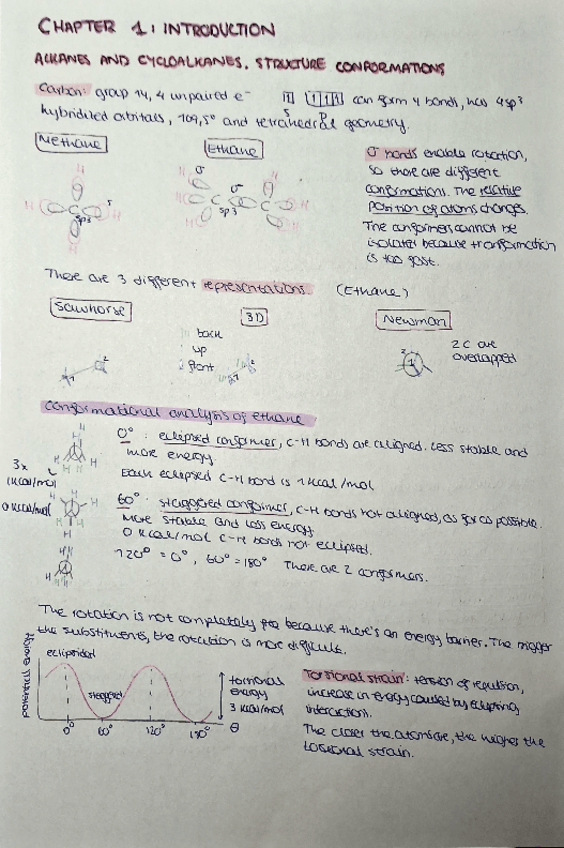 CHAPTER 1: INTRODUCTION
ALKANES AND CYCLOALKANES. STRUCTURE CONFORMATIONS
Carbon: group 14, 4 unpaired e⁻ 1 1 1 1 can form 4 bonds, has 4 sp³
S P
hybridized orbitals, 109,5° and tetrahedral geometry.
Methane
Ethane
H H H H
sp3
H H H H H H
σ σ sp3
σ bonds enable rotation,
so there are different
conformations. The relative
position of atoms changes.
The conformers cannot be
isolated because tranformation
is too fast.
There are 3 different representations. (Ethane)
Sawhorse
3D
Newman
back
up
front
1 2
1 2
2 1
2 C are
overlapped
Conformational analysis of ethane
0°: eclipsed conformer, C-H bonds are aligned. Less stable and
more energy
Each eclipsed C-H bond is 1 kcal/mol
3x
1 kcal/mol
60°: staggered conformer, C-H bonds not aligned, as far as possible.
0 kcal/mol
More stable and less energy
0 kcal/mol C-H bonds not eclipsed.
120° = 0°, 60° = 180° There are 2 conformers.
The rotation is not completely free because there's an energy barrier. The bigger
the substituents, the rotation is more difficult.
potential energy
eclipsided
staggered
torsional
energy
3 kcal/mol
0° 60° 120° 180° θ
Torsional strain: tension of repulsion,
increase in energy caused by eclipsing
interaction.
The closer the atoms are, the higher the
torsional strain.